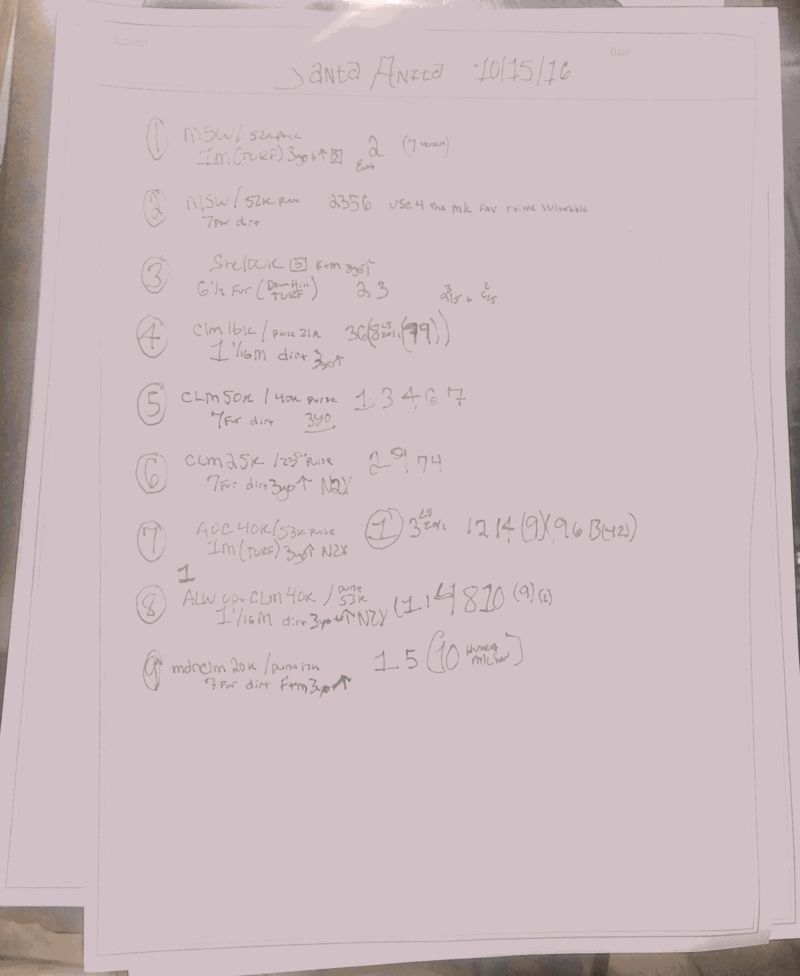 Subject Date
Santa Anita 10/15/16
1 MSW/ 52K purse
1m (TURF) 3yo+↑ S 2 Even (7
2 MSW/ 52K purse 2356 use 4 the mk FAV vulnerable
7Fur dirt
3 Stk100K S F+m 3yo↑
6 1/2 Fur (Down Hill TURF) 2 3
4 Clm 16K / purse 21K 36(8 20/1 (79))
1 1/16m dirt 3yo↑
5 CLM 50K / 40K purse 1 3 4 6 7
7Fur dirt 3yo
6 CLM 25K / purse 2 9 7 4
7Fur dirt 3yo↑ N2X
7 AOC 40K/53K purse 1 3 20/1 12 14 (9)(9 6 13(4 2)
1m (TURF) 3yo↑ N2X
1
8 ALW opt CLM 40K / purse 53K (1, 4 8 10 (9) (2)
1 1/16m dirt 3yo+↑ N2X
9 mdnclm 20K / purse 17K 1 5 (10
7Fur dirt F+m 3yo↑